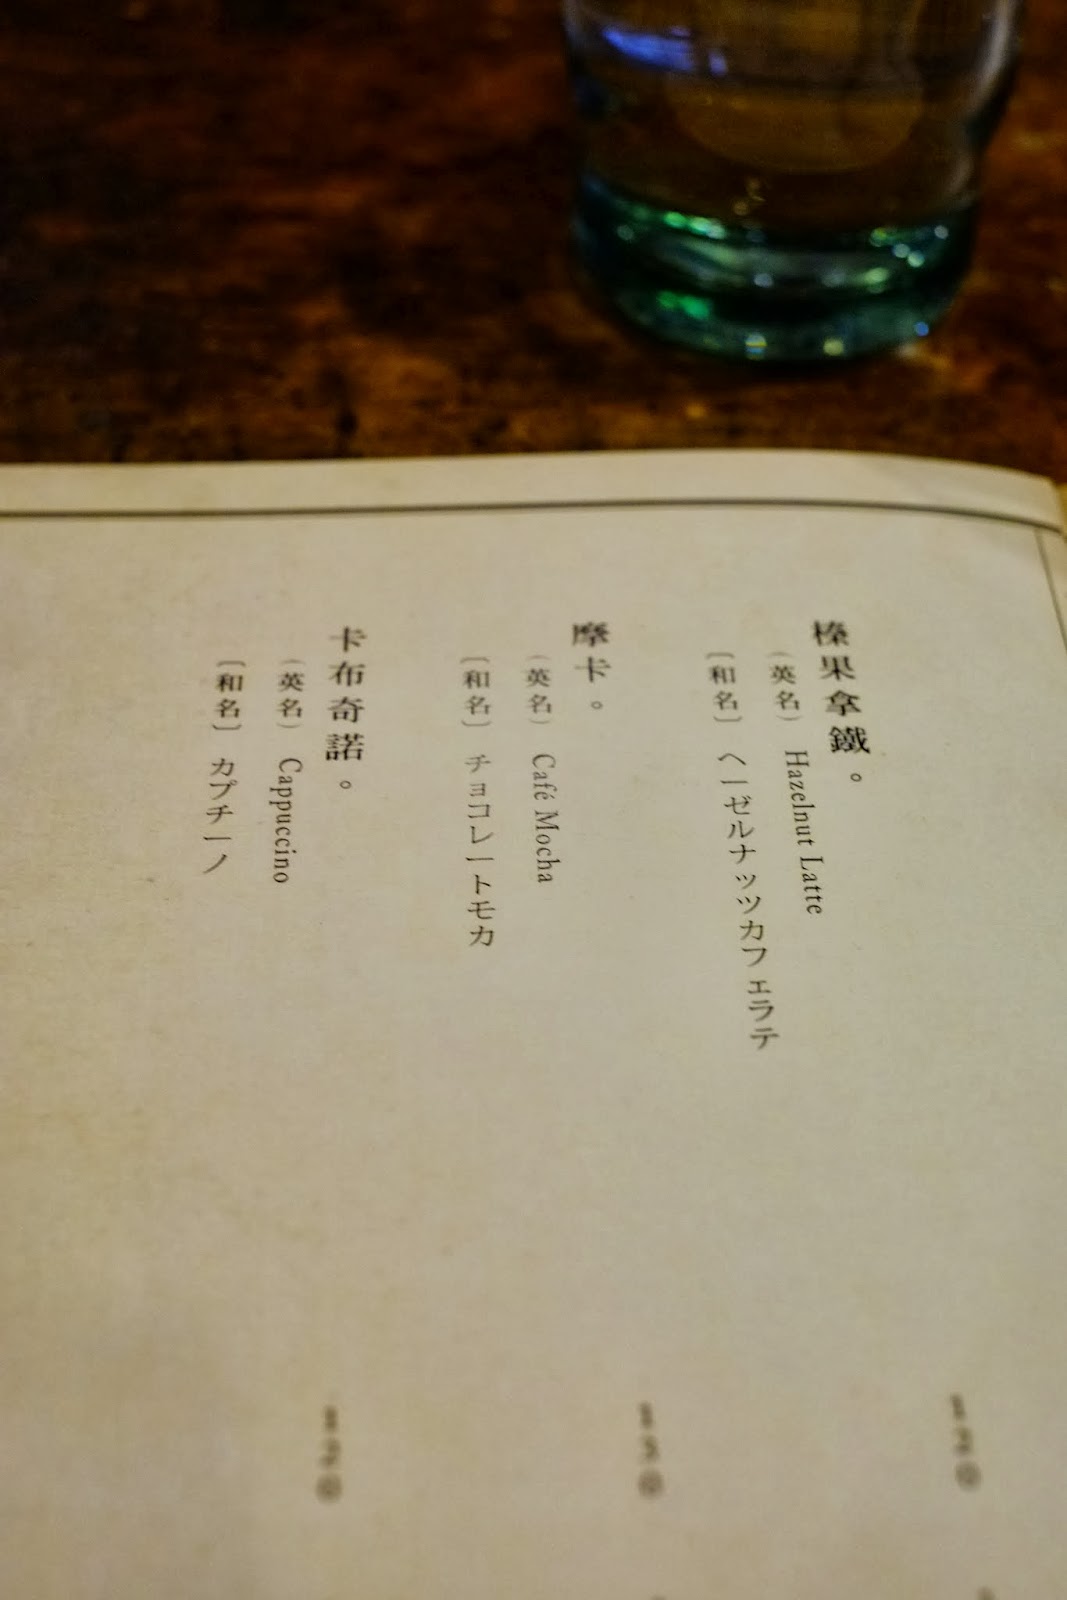 榛果拿鐵。
(英名) Hazelnut Latte
〔和名〕 ヘーゼルナッツカフェラテ
摩卡。
(英名) Café Mocha
〔和名〕 チョコレートモカ
卡布奇諾。
(英名) Cappuccino
〔和名〕 カプチーノ